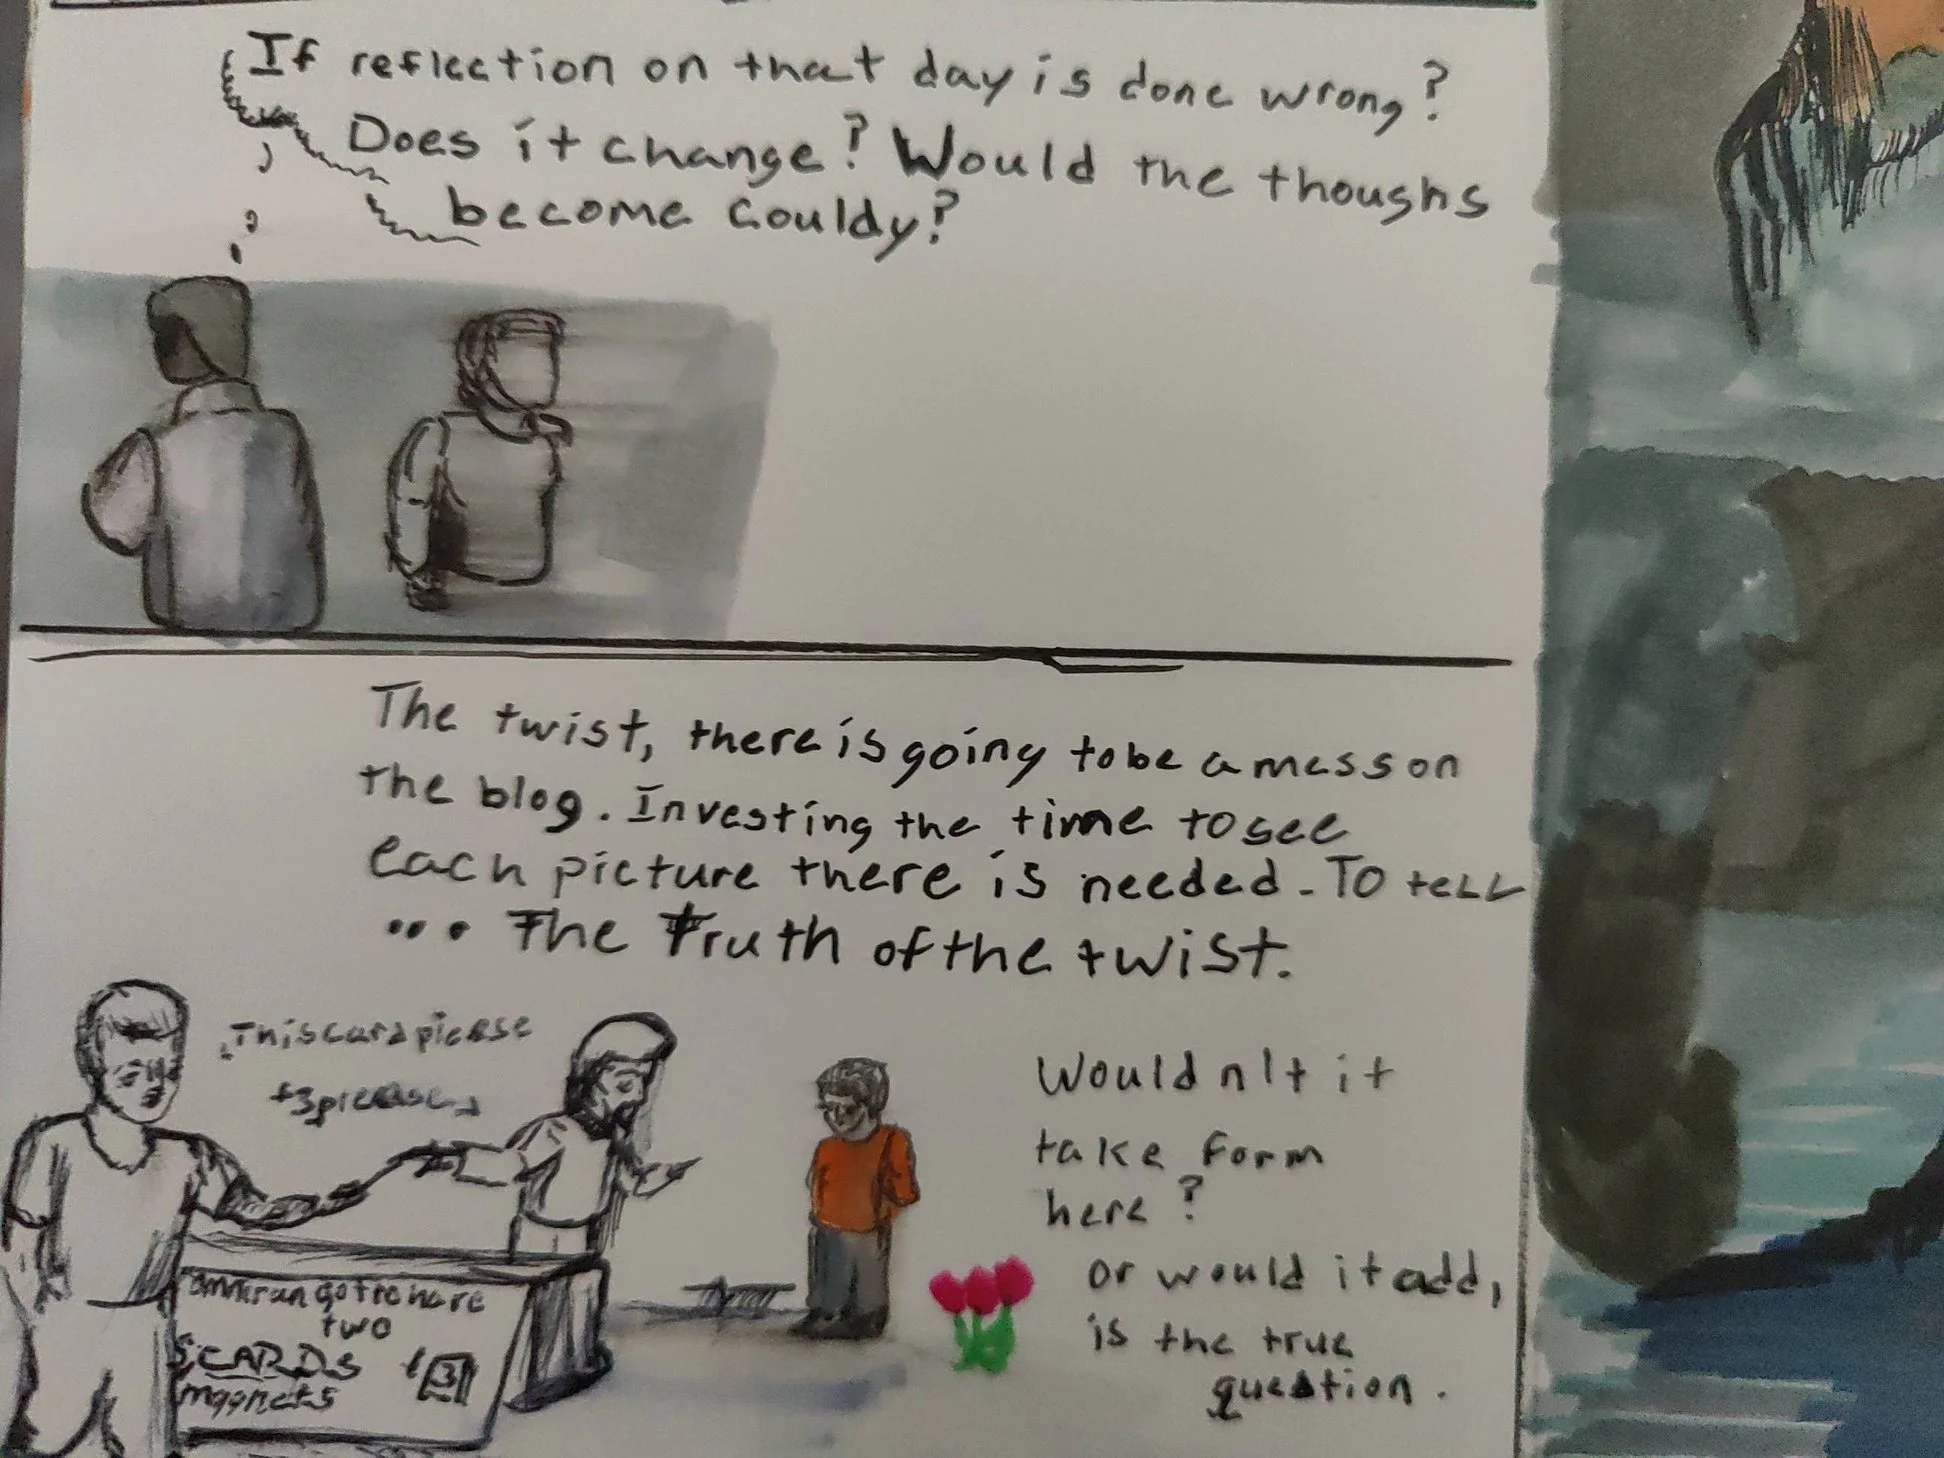 If reflection on that day is done wrong?
Does it change? Would the thoughs
become couldy?
The twist, there is going to be a mess on
the blog. Investing the time to see
each picture there is needed. To tell
... The Truth of the twist.
This card please
+3 please
Wouldn't it
take form
here?
or would it add,
is the true
question.
two
CARDS
magnets